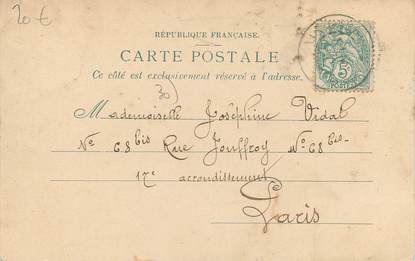 20 €
RÉPUBLIQUE FRANÇAISE.
CARTE POSTALE
Ce côté est exclusivement réservé à l'adresse.
30)
Mademoiselle Joséphine Vidal
No 68 bis Rue Jouffroy No 68 bis
17e arrondissement
Paris
5